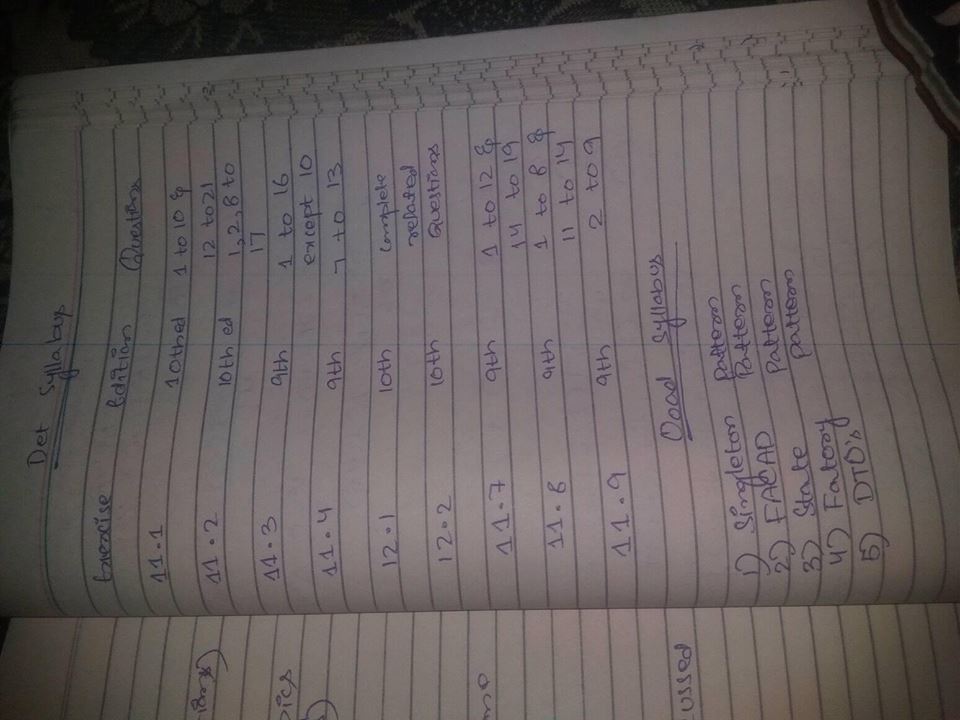 Det Syllabus
Exercise Edition Questions
11.1 10th ed 1 to 10 &
12 to 21
11.2 10th ed 1, 2, 8 to
17
11.3 9th 1 to 16
except 10
11.4 9th 7 to 13
12.1 10th complete
related
12.2 10th Questions
11.7 9th 1 to 12 &
14 to 19
11.8 9th 1 to 8 &
11 to 14
11.9 9th 2 to 9
Ooad Syllabus
1) Singleton Pattern
2) FACAD Pattern
3) State Pattern
4) Fatory Pattern
5) DTO's
ussed